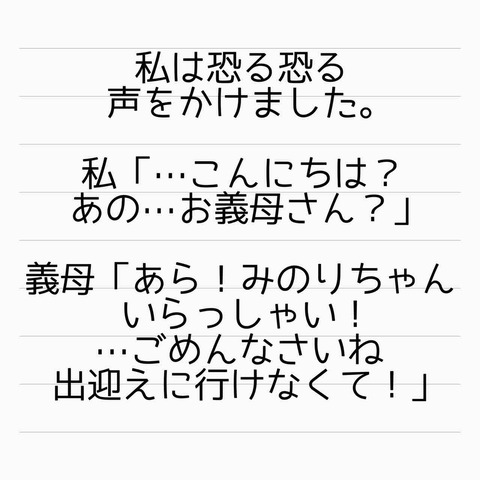 私は恐る恐る
声をかけました。
私「…こんにちは？
あの…お義母さん？」
義母「あら！みのりちゃん
いらっしゃい！
…ごめんなさいね
出迎えに行けなくて！」